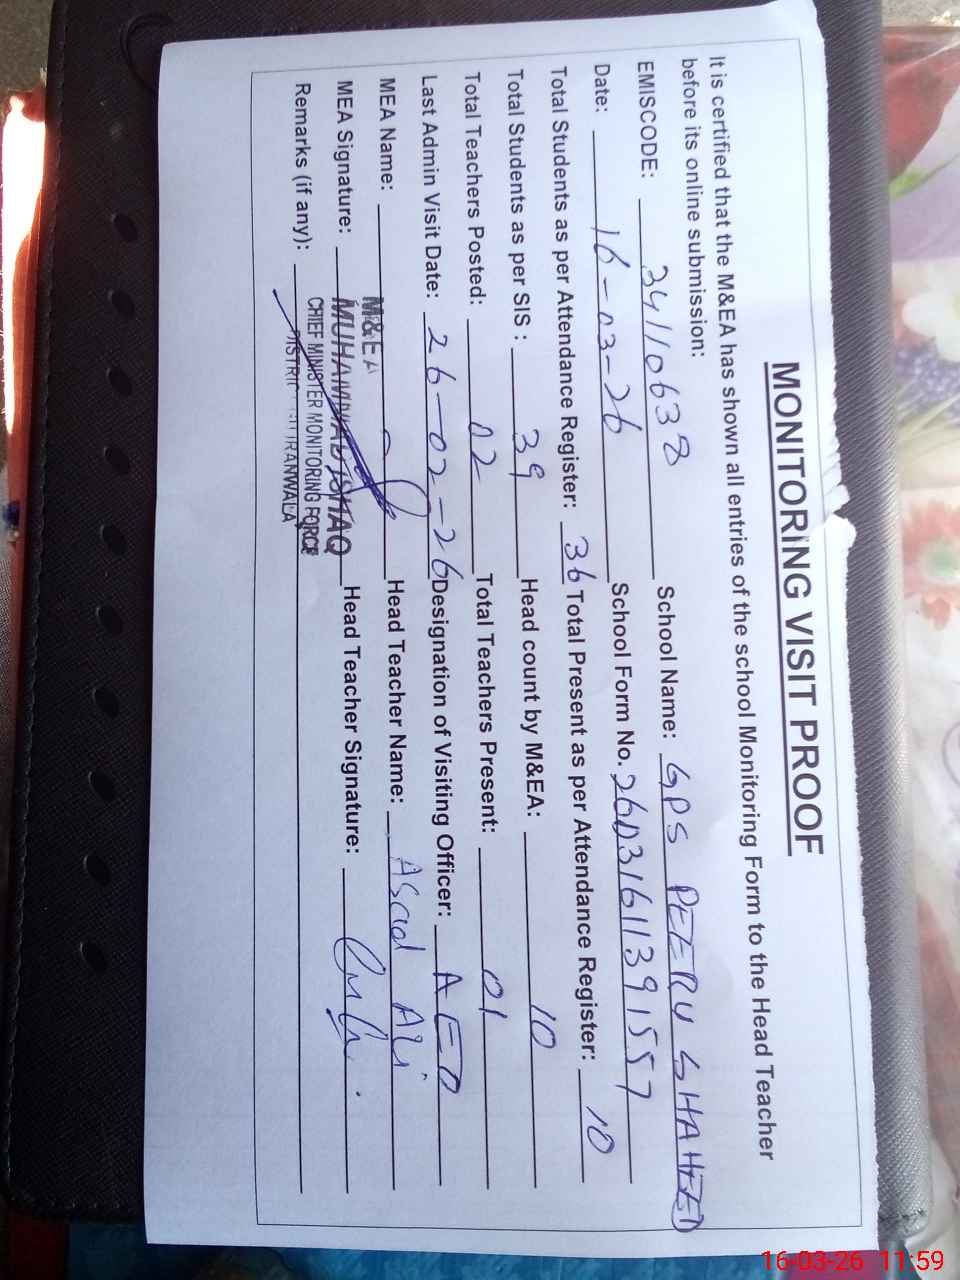 MONITORING VISIT PROOF
It is certified that the M&EA has shown all entries of the school Monitoring Form to the Head Teacher
before its online submission:
EMISCODE: 34110638 School Name: GPS PEERU SHAHEED
Date: 16-03-26 School Form No. 26031611391557
Total Students as per Attendance Register: 36 Total Present as per Attendance Register: 10
Total Students as per SIS : 39 Head count by M&EA: 10
Total Teachers Posted: 02 Total Teachers Present: 01
Last Admin Visit Date: 26-02-26 Designation of Visiting Officer: AEO
MEA Name: M&EA Head Teacher Name: Asad Ali
MEA Signature: MUHAMMAD Head Teacher Signature:
CHIEF MINISTER MONITORING FORCE
Remarks (if any):
16-03-26 11:59